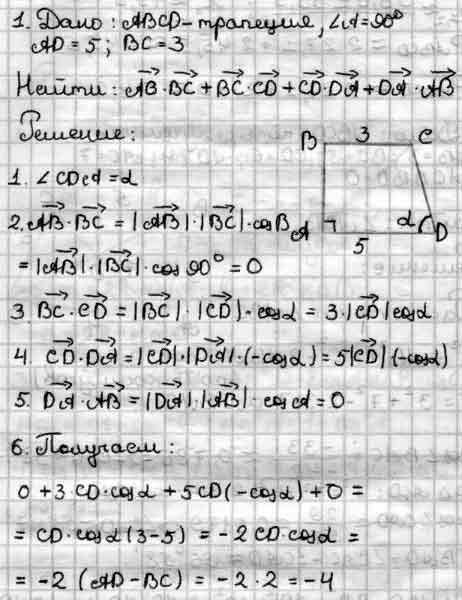 1. Дано: ABCD - трапеция, ∠A=90°
AD = 5; BC = 3
Найти: AB⃗·BC⃗ + BC⃗·CD⃗ + CD⃗·DA⃗ + DA⃗·AB⃗
Решение:
B 3 C
A 5 α D
1. ∠CDA = α
2. AB⃗·BC⃗ = |AB⃗|·|BC⃗|·cosB
= |AB⃗|·|BC⃗|·cos 90° = 0
3. BC⃗·CD⃗ = |BC⃗|·|CD⃗|·cosα = 3·|CD⃗|cosα
4. CD⃗·DA⃗ = |CD⃗|·|DA⃗|·(-cosα) = 5|CD⃗|(-cosα)
5. DA⃗·AB⃗ = |DA⃗|·|AB⃗|·cosA = 0
6. Получаем:
0 + 3·CD·cosα + 5CD(-cosα) + 0 =
= CD·cosα(3-5) = -2CD·cosα =
= -2(AD-BC) = -2·2 = -4